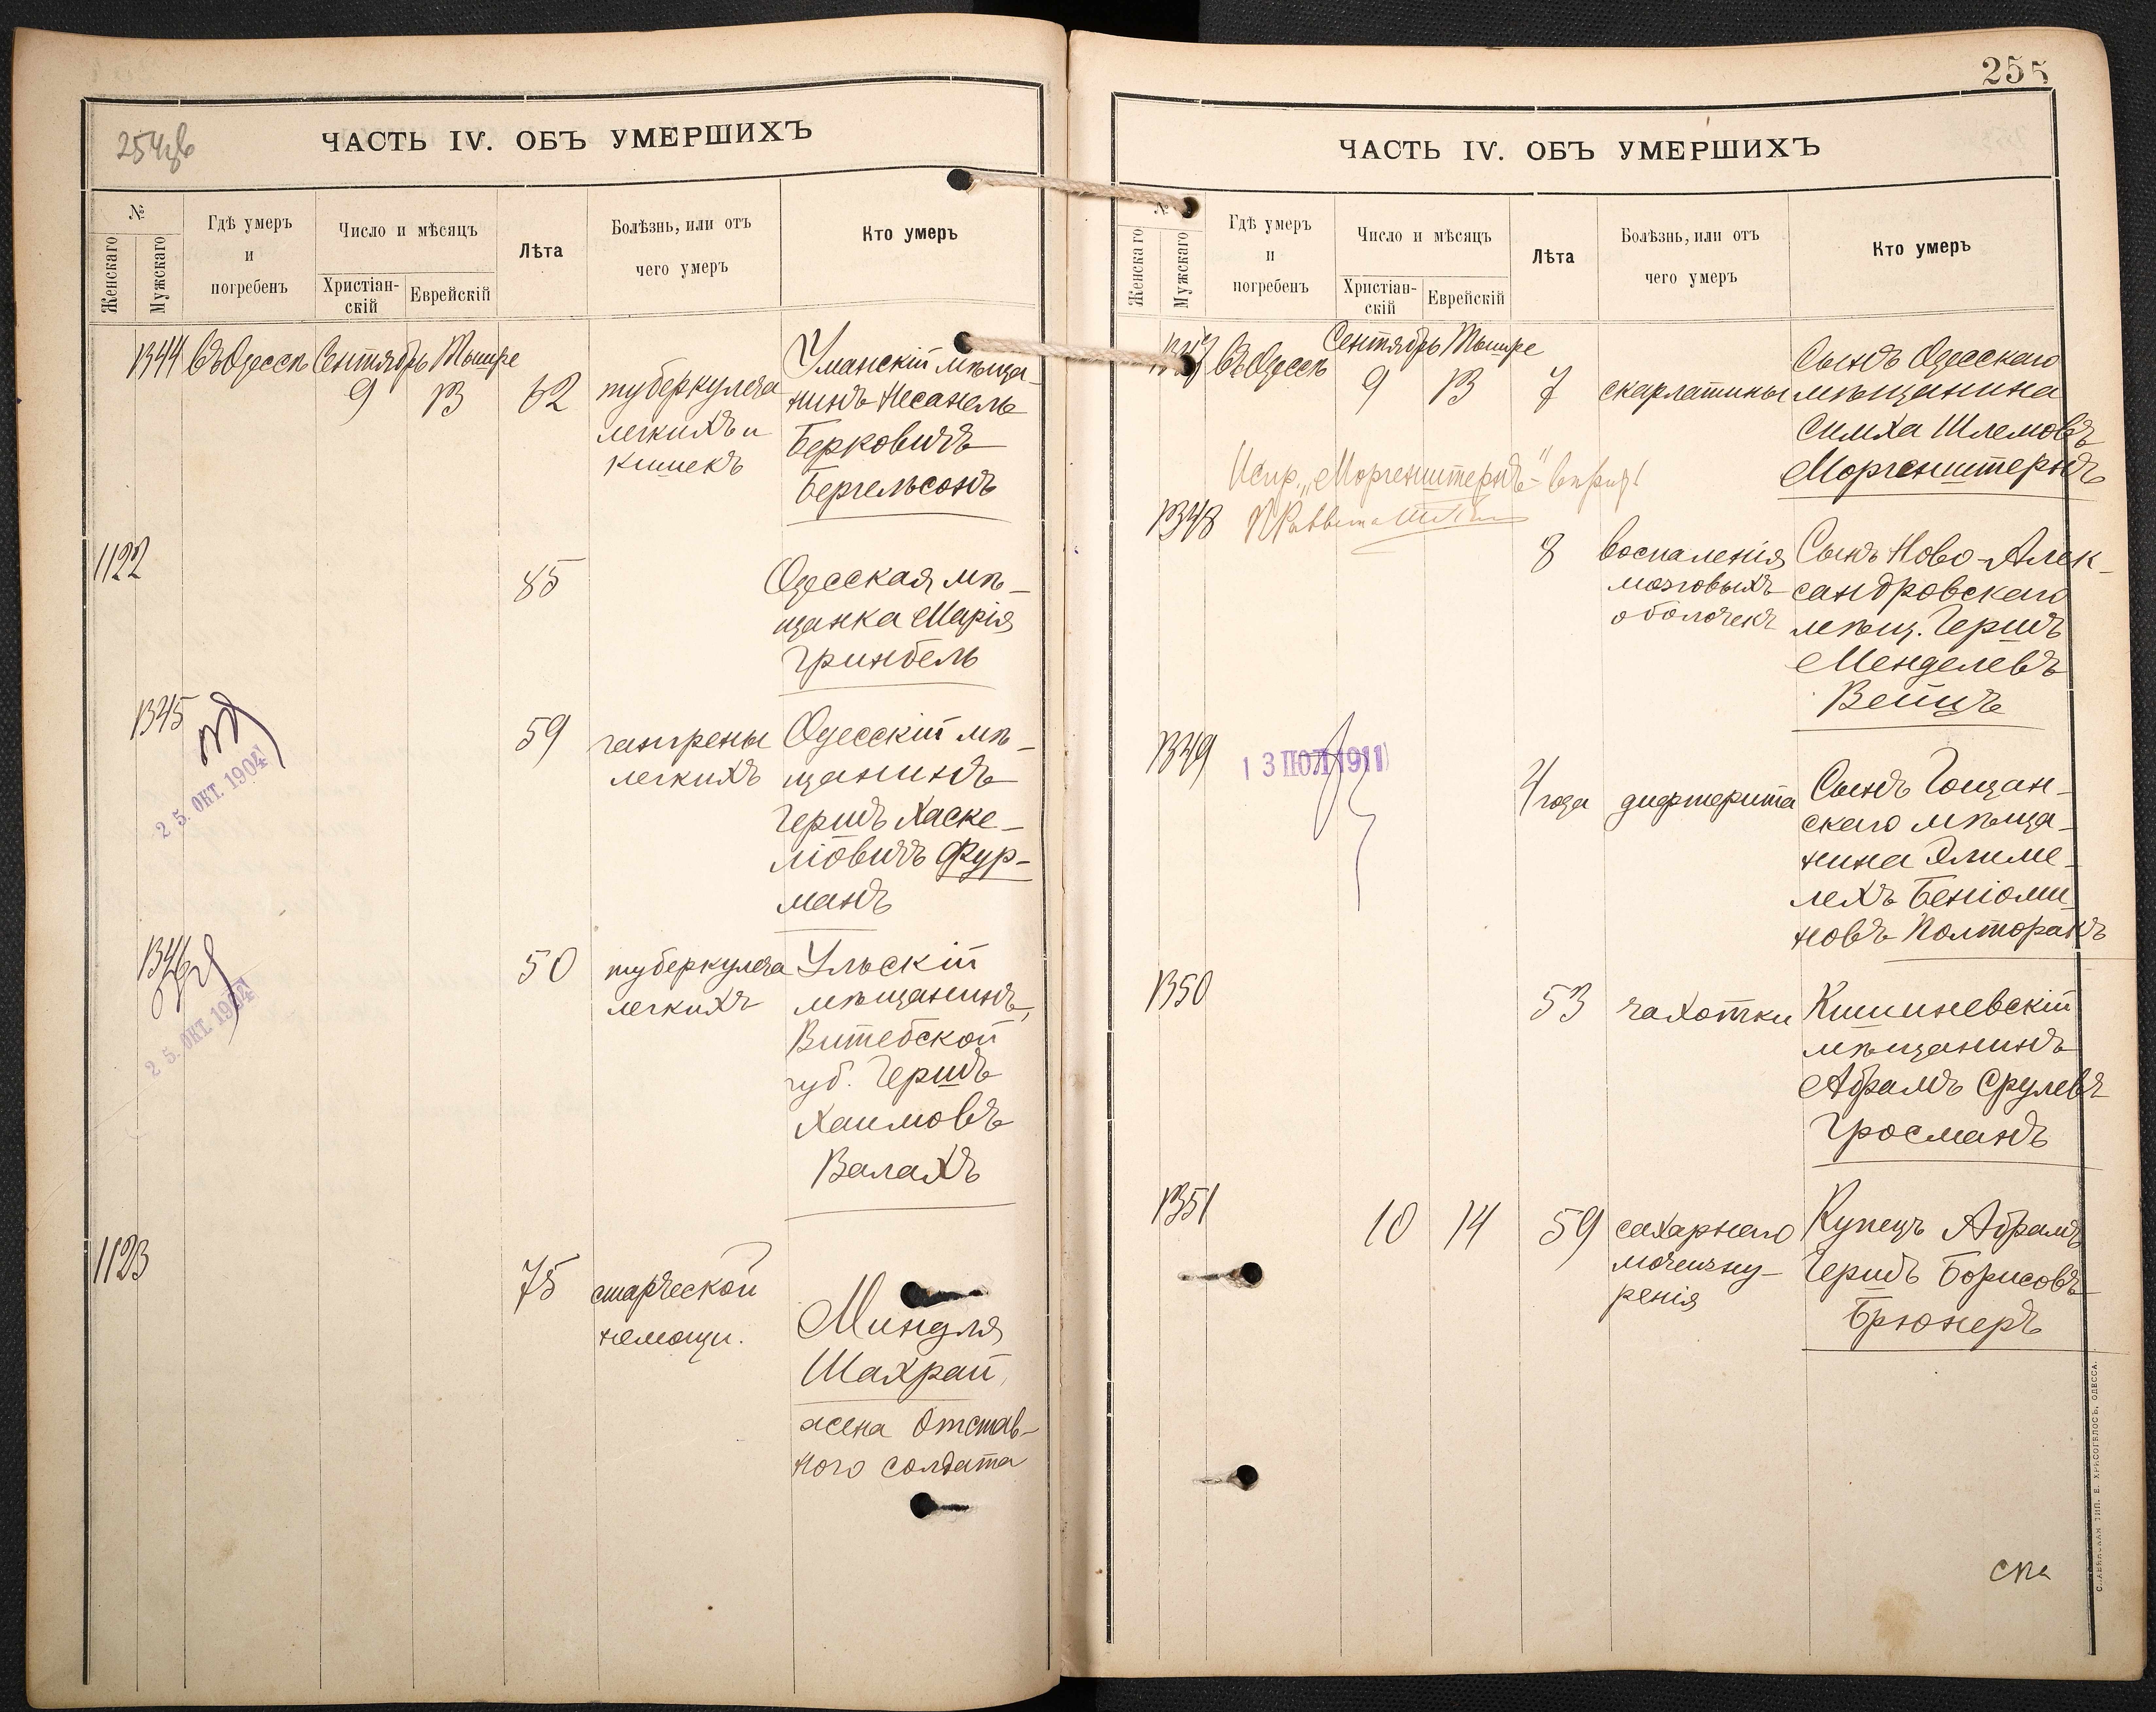 254об
ЧАСТЬ IV. ОБЪ УМЕРШИХЪ
№
Женскаго
Мужскаго
Гдѣ умеръ
и
погребенъ
Число и мѣсяцъ
Христіан-
скій
Еврейскій
Лѣта
Болѣзнь, или отъ
чего умеръ
Кто умеръ
1344 Въ Одессѣ Сентябрь Тишре
9 13 62
туберкулеза
легкихъ и
кишекъ
Уманскій мѣща-
нинъ Несанель
Берковичъ
Бергельсонъ
1122
85
Одесская мѣ-
щанка Марія
Гринбель
1345
25. ОКТ. 1904
59
гангрены
легкихъ
Одесскій мѣ-
щанинъ
Гершъ Хаске-
ліовичъ Фур-
манъ
1346
25. ОКТ. 1904
50
туберкулеза
легкихъ
Ульскій
мѣщанинъ,
Витебской
губ. Гершъ
Хаимовъ
Валахъ
1123
75
старческой
немощи.
Миндля
Шахрай,
жена отстав-
ного солдата
255
ЧАСТЬ IV. ОБЪ УМЕРШИХЪ
№
Женскаго
Мужскаго
Гдѣ умеръ
и
погребенъ
Число и мѣсяцъ
Христіан-
скій
Еврейскій
Лѣта
Болѣзнь, или отъ
чего умеръ
Кто умеръ
1347 Въ Одессѣ Сентябрь Тишре
9 13 7
скарлатины
Сынъ Одесскаго
мѣщанина
Симха Шлемовъ
Моргенштернъ
Испр. „Моргенштернъ"
1348
8
воспаленія
мозговыхъ
оболочекъ
Сынъ Ново-Алек-
сандровскаго
мѣщ. Гершъ
Менделевъ
Вейцъ
1349
13 ІЮЛ 1911
4 года
дифтерита
Сынъ Гощан-
скаго мѣща-
нина Элиме-
лехъ Беніоми-
новъ Полторакъ
1350
53
чахотки
Кишиневскій
мѣщанинъ
Абрамъ Срулевъ
Гросманъ
1351
10 14 59
сахарнаго
мочеизну-
ренія
Купецъ Абрамъ
Гершъ Борисовъ
Брюнеръ
СЛАВЯНСКАЯ ТИП. Е. ХРИСОГЕЛОСЪ, ОДЕССА.